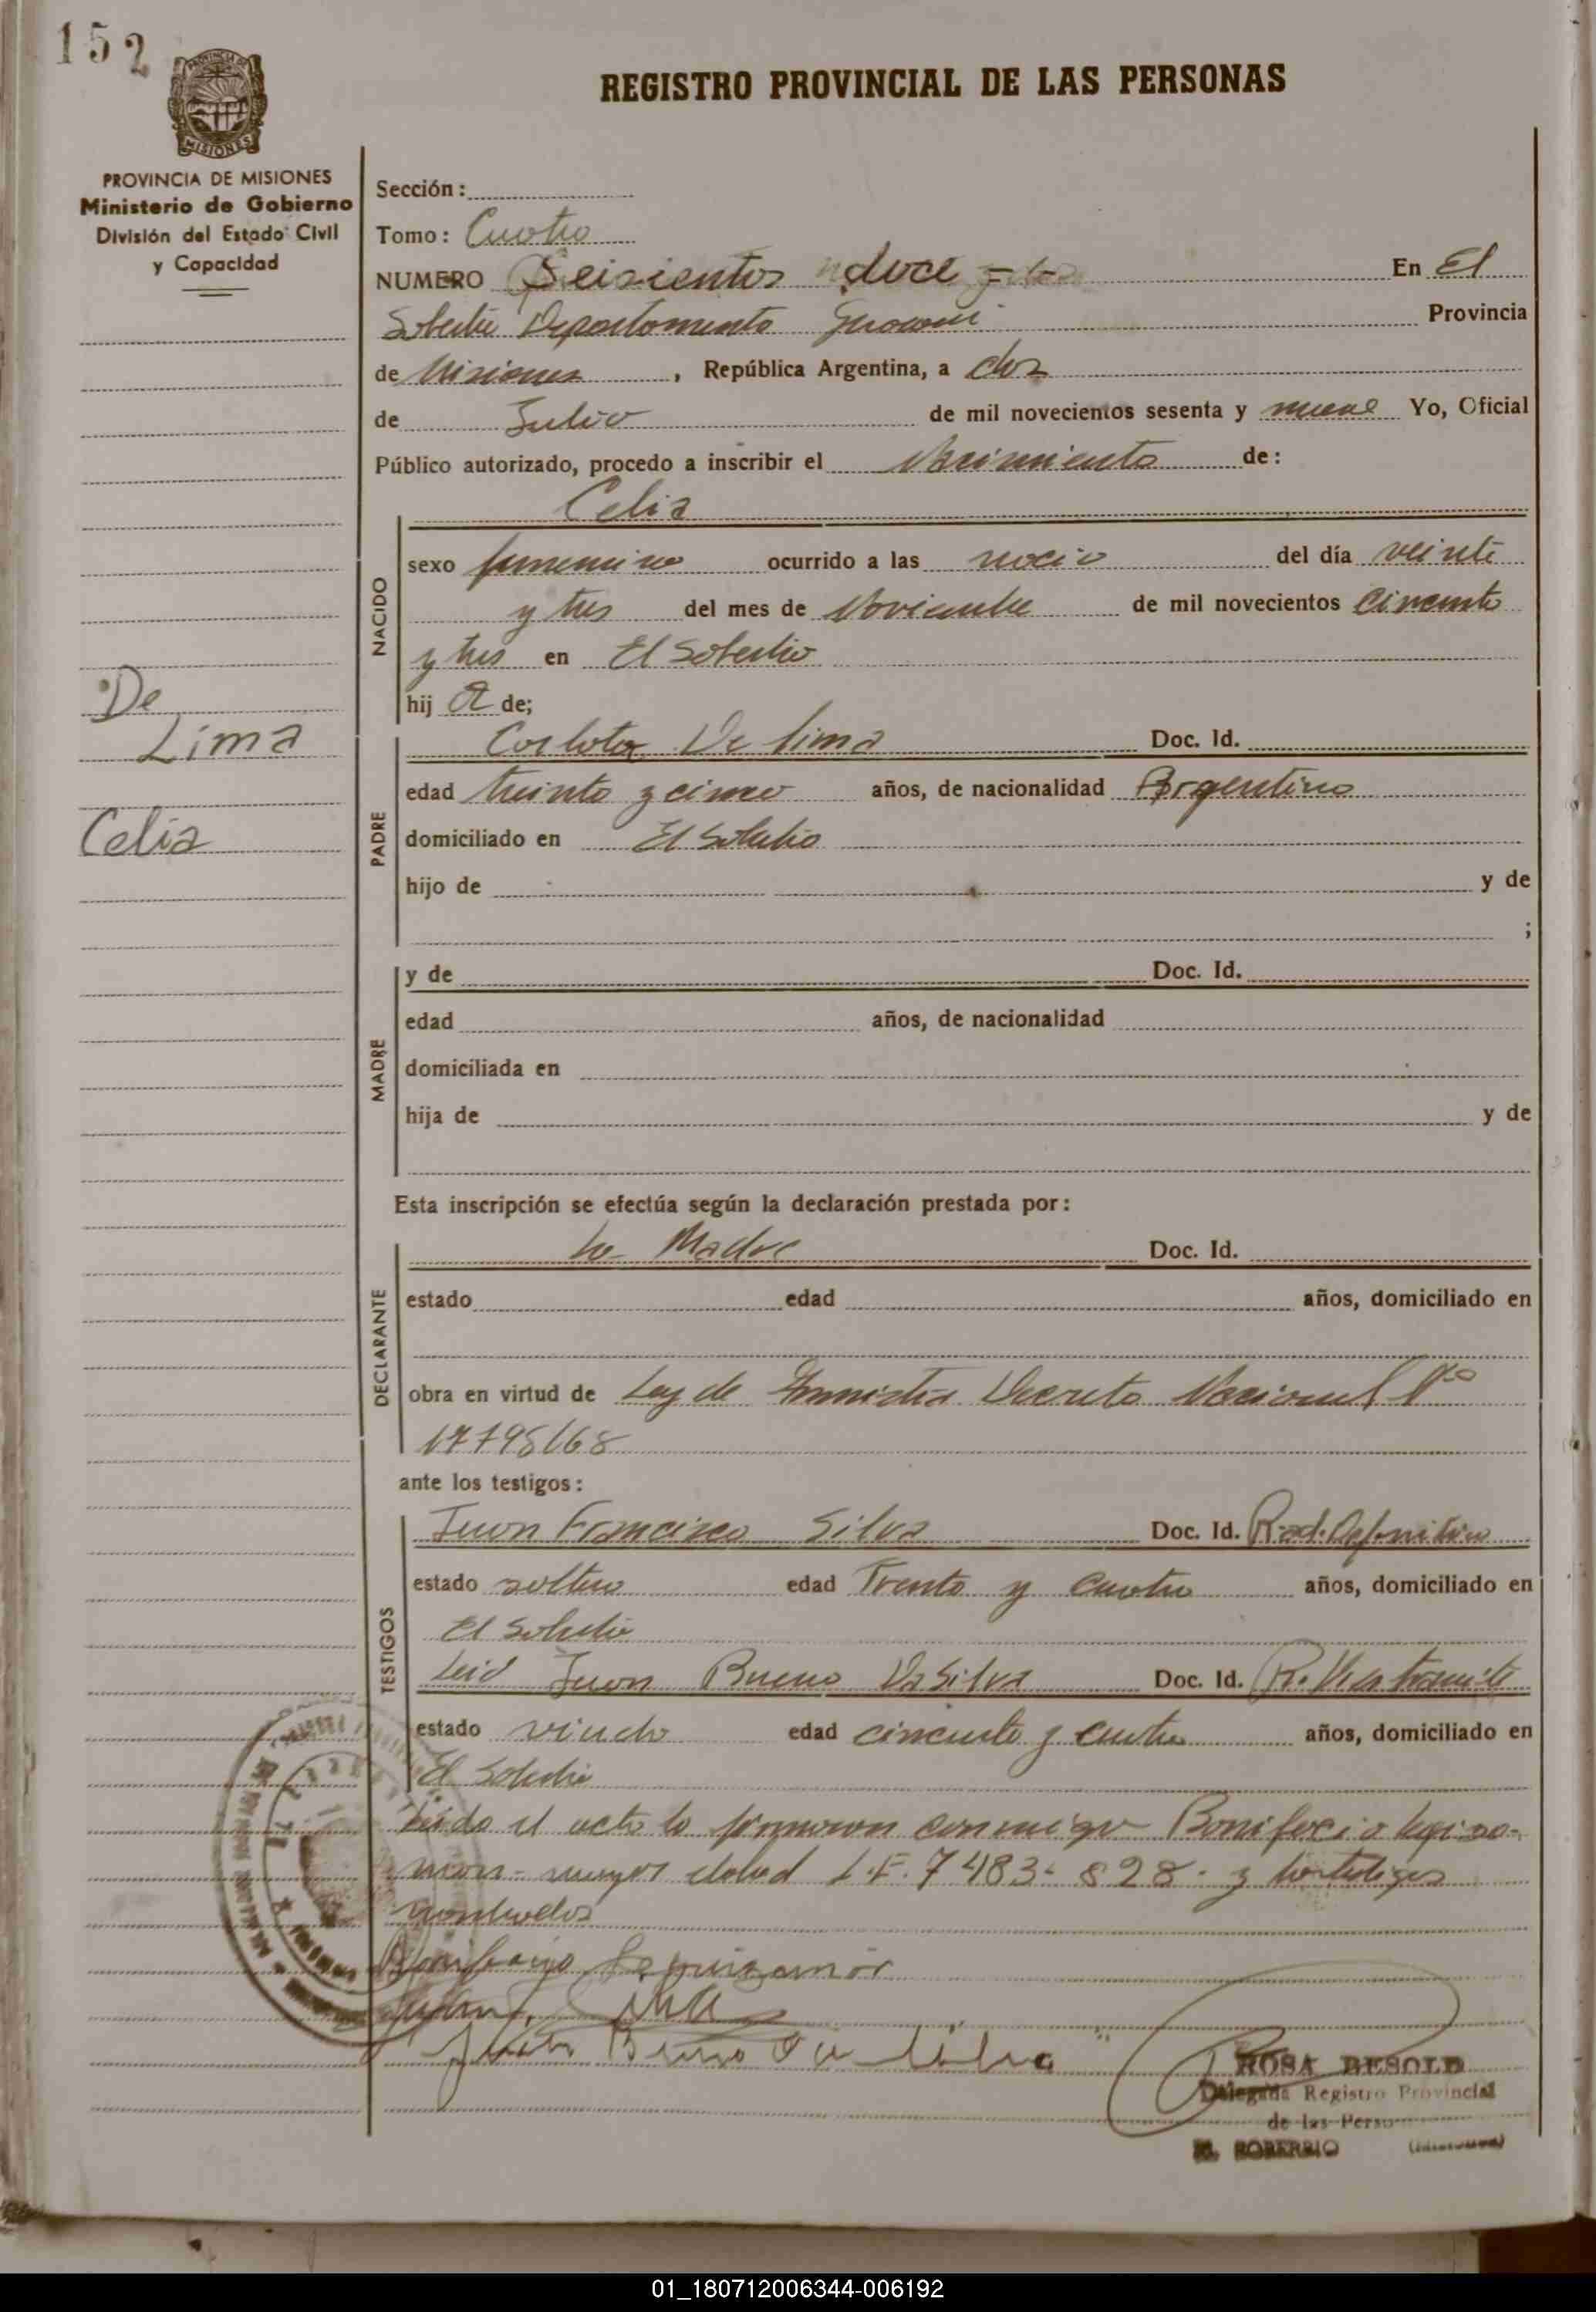 152
REGISTRO PROVINCIAL DE LAS PERSONAS
PROVINCIA DE MISIONES
Ministerio de Gobierno
División del Estado Civil
y Capacidad
Sección:
Tomo: Cuatro
NUMERO Seiscientos doce En El
Soberbio Departamento Guarani Provincia
de Misiones, República Argentina, a dos
de Julio de mil novecientos sesenta y nueve Yo, Oficial
Público autorizado, procedo a inscribir el Nacimiento de:
Celia
NACIDO
sexo femenino ocurrido a las del día veinte
y tres del mes de Noviembre de mil novecientos cincuenta
y tres en El Soberbio
hij a de;
De
Lima
Celia
PADRE
Carlota De Lima Doc. Id.
edad treinta y cinco años, de nacionalidad Argentina
domiciliado en El Soberbio
hijo de y de
;
MADRE
y de Doc. Id.
edad años, de nacionalidad
domiciliada en
hija de y de
Esta inscripción se efectúa según la declaración prestada por:
DECLARANTE
La Madre Doc. Id.
estado edad años, domiciliado en
obra en virtud de Ley de Amnistia Decreto Nacional Nº
17795/68
ante los testigos:
TESTIGOS
Juan Francisco Silva Doc. Id. Rad. Definitiva
estado soltero edad Trenta y cuatro años, domiciliado en
El Soberbio
Juan Bueno Da Silva Doc. Id.
estado viudo edad cincuenta y cuatro años, domiciliado en
El Soberbio
Leido el acta lo firmaron conmigo Bonifacio Leguiza-
mon- mayor edad L.E. 7483-828- y los testigos
nombrados
Bonifacio Leguizamón
Juan F. Silva
Juan Bueno Da Silva
ROSA BESOLD
Delegada Registro Provincial
de las Perso
EL SOBERBIO (Misiones)
01_180712006344-006192